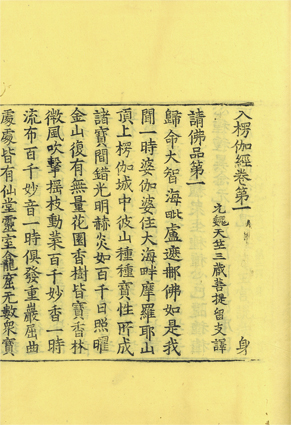 入楞伽經卷第一
身
元魏天竺三藏菩提留支譯
請佛品第一
歸命大智海毗盧遮那佛如是我
聞一時婆伽婆住大海畔摩羅耶山
頂上楞伽城中彼山種種寶性所成
諸寶間錯光明赫炎如百千日照曜
金山復有無量花園香樹皆寶香林
微風吹擊搖枝動葉百千妙香一時
流布百千妙音一時俱發重巖屈曲
處處皆有仙堂靈室龕窟无數衆寶